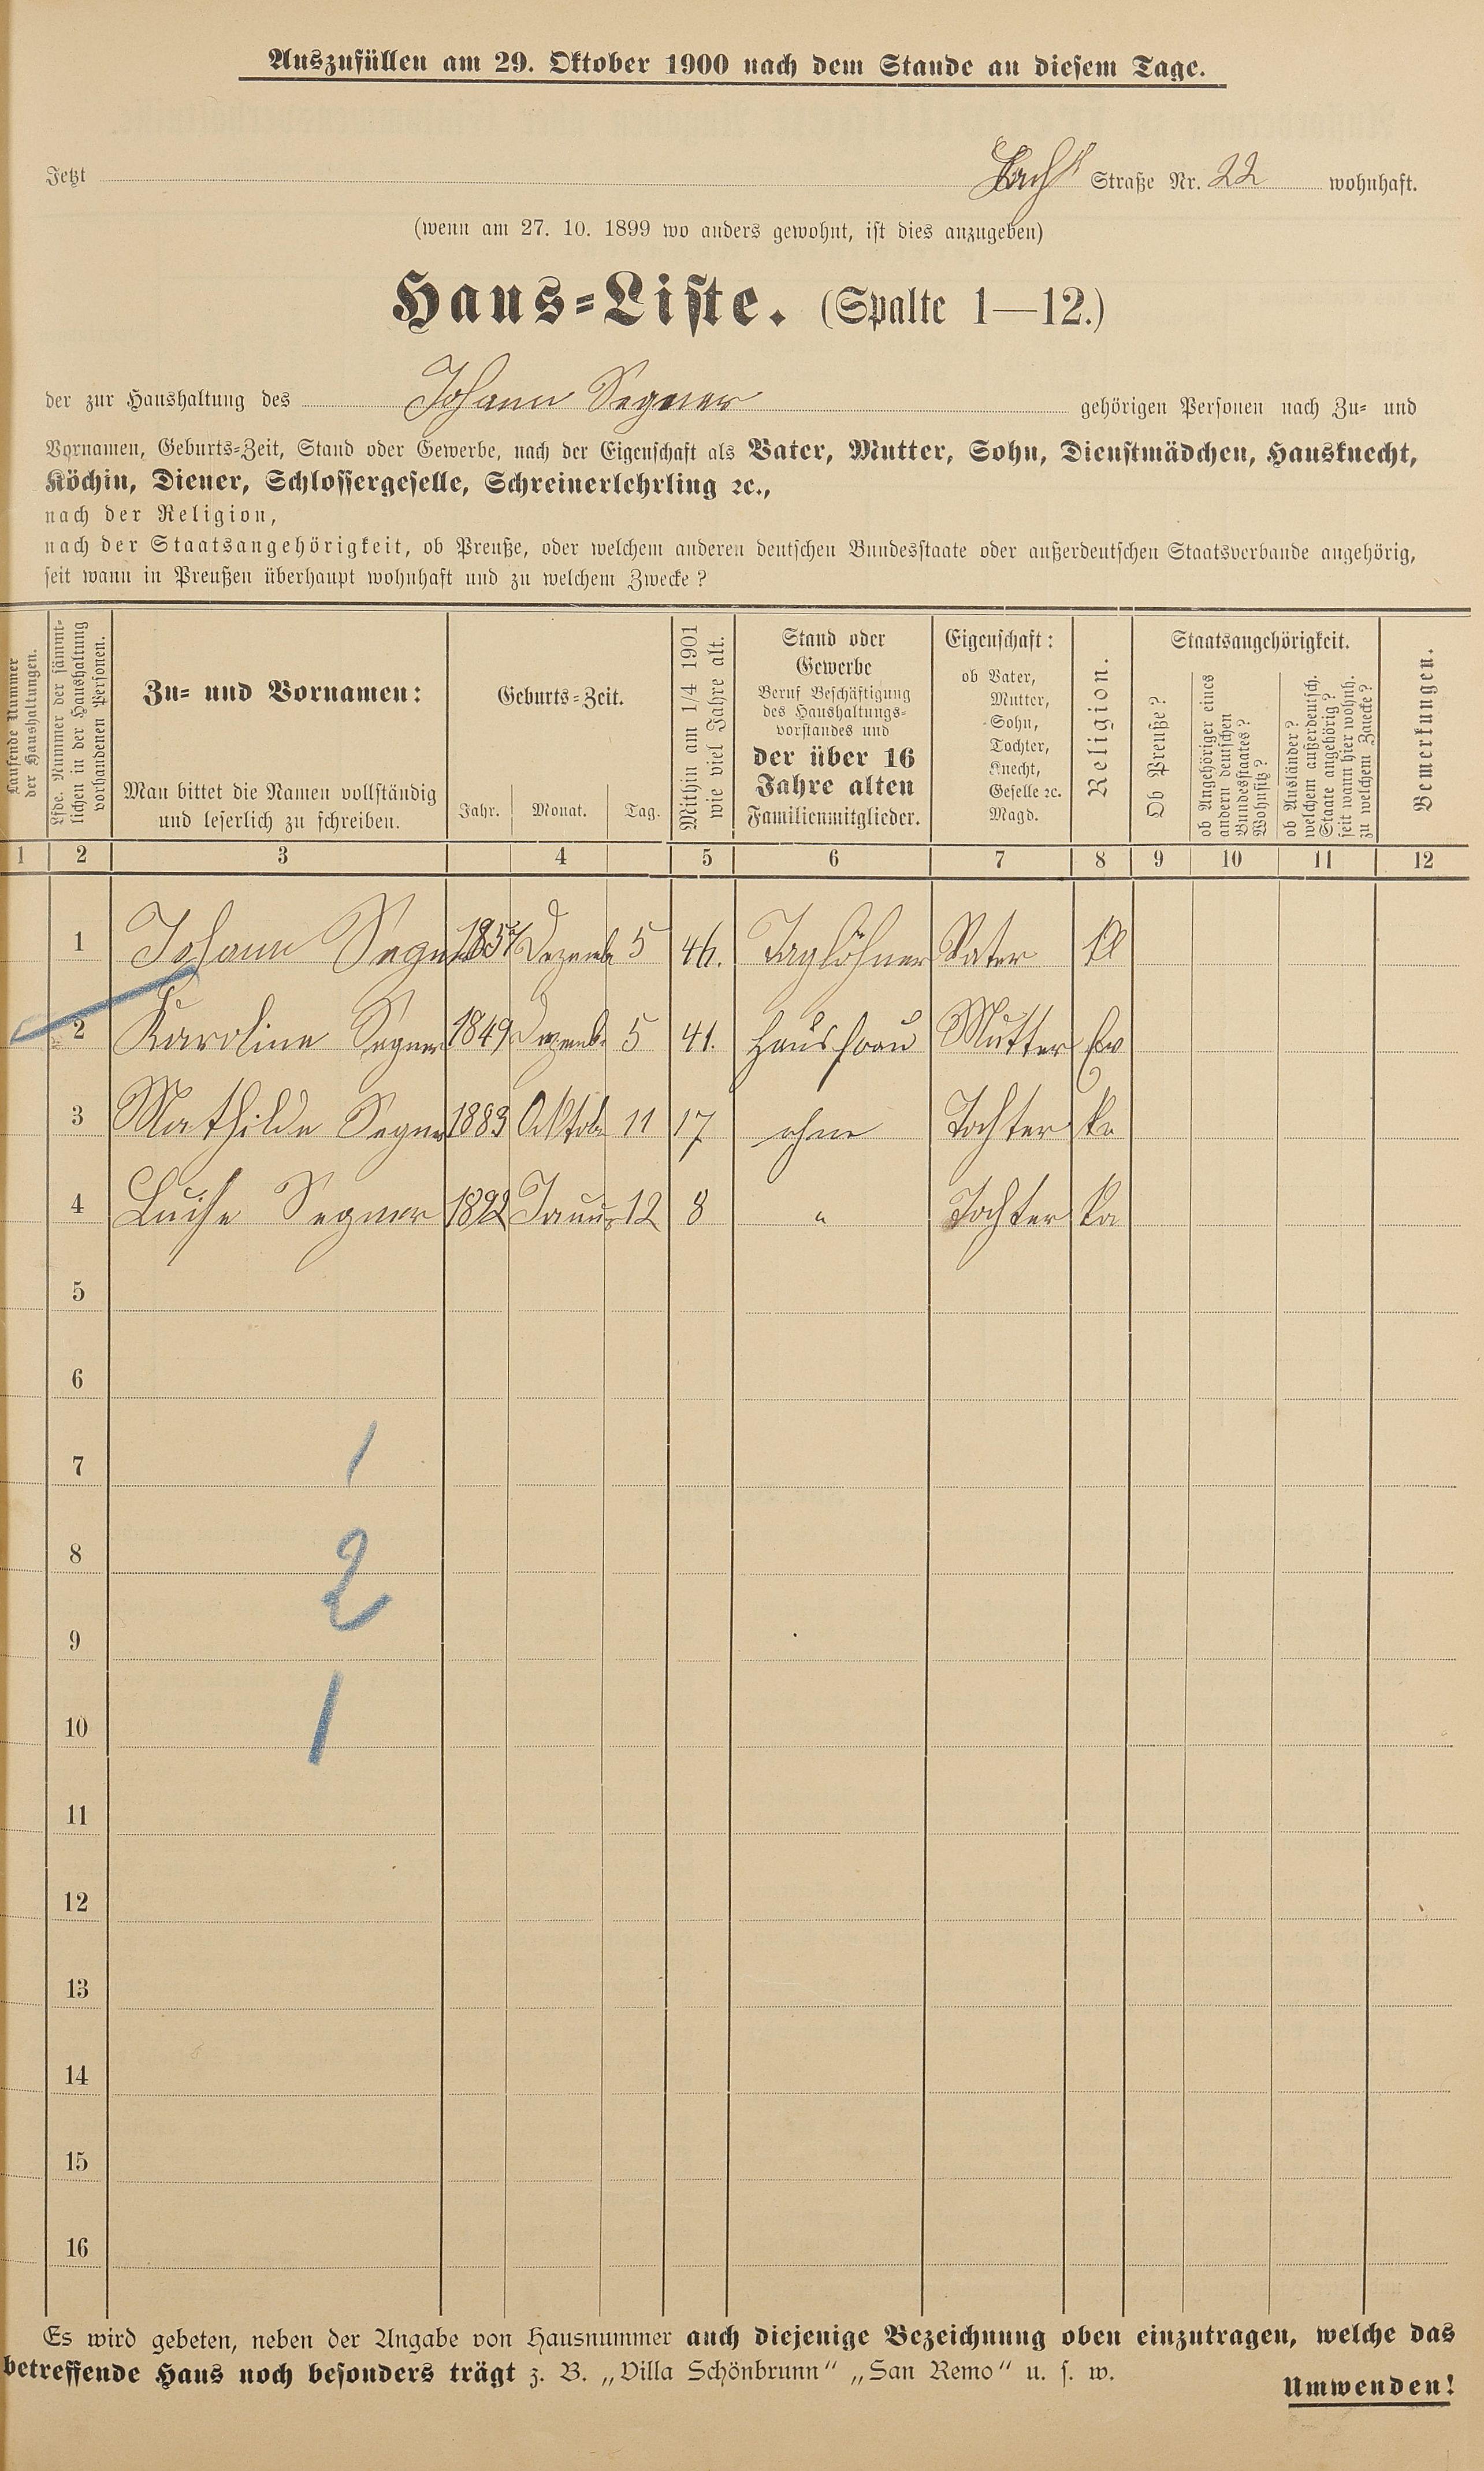 Auszufüllen am 29. Oktober 1900 nach dem Stande an diesem Tage.
Jetzt Straße Nr. 22 wohnhaft.
(wenn am 27. 10. 1899 wo anders gewohnt, ist dies anzugeben)
Haus-Liste. (Spalte 1—12.)
der zur Haushaltung des Johann Segner gehörigen Personen nach Zu- und
Vornamen, Geburts-Zeit, Stand oder Gewerbe, nach der Eigenschaft als Vater, Mutter, Sohn, Dienstmädchen, Hausknecht,
Köchin, Diener, Schlossergeselle, Schreinerlehrling ꝛc.,
nach der Religion,
nach der Staatsangehörigkeit, ob Preuße, oder welchem anderen deutschen Bundesstaate oder außerdeutschen Staatsverbande angehörig,
seit wann in Preußen überhaupt wohnhaft und zu welchem Zwecke?
Laufende Nummer
der Haushaltungen.
Lfde. Nummer der sämmt-
lichen in der Haushaltung
vorhandenen Personen.
Zu- und Vornamen:
Man bittet die Namen vollständig
und leserlich zu schreiben.
Geburts-Zeit.
Jahr. Monat. Tag.
Mithin am 1/4 1901
wie viel Jahre alt.
Stand oder
Gewerbe
Beruf Beschäftigung
des Haushaltungs-
vorstandes und
der über 16
Jahre alten
Familienmitglieder.
Eigenschaft:
ob Vater,
Mutter,
Sohn,
Tochter,
Knecht,
Geselle ꝛc.
Magd.
Religion.
Staatsangehörigkeit.
Ob Preuße?
ob Angehöriger eines
andern deutschen
Bundesstaates?
Wohnsitz?
ob Ausländer?
welchem außerdeutsch.
Staate angehörig?
seit wann hier wohnh.
zu welchem Zwecke?
Bemerkungen.
1 2 3 4 5 6 7 8 9 10 11 12
1 Johann Segner Dezemb 5 46. Taglöhner Vater
2 Karoline Segner 1849 Dezemb. 5 41. Hausfrau Mutter Ev
3 Mathilde Segner 1883 Oktob 11 17 ohne Tochter ka
4 Luise Segner 1892 Janur 12 8 " Tochter ka
5
6
7
1
8
2
9
10
1
11
12
13
14
15
16
Es wird gebeten, neben der Angabe von Hausnummer auch diejenige Bezeichnung oben einzutragen, welche das
betreffende Haus noch besonders trägt z. B. „Villa Schönbrunn“ „San Remo“ u. s. w.
Umwenden!